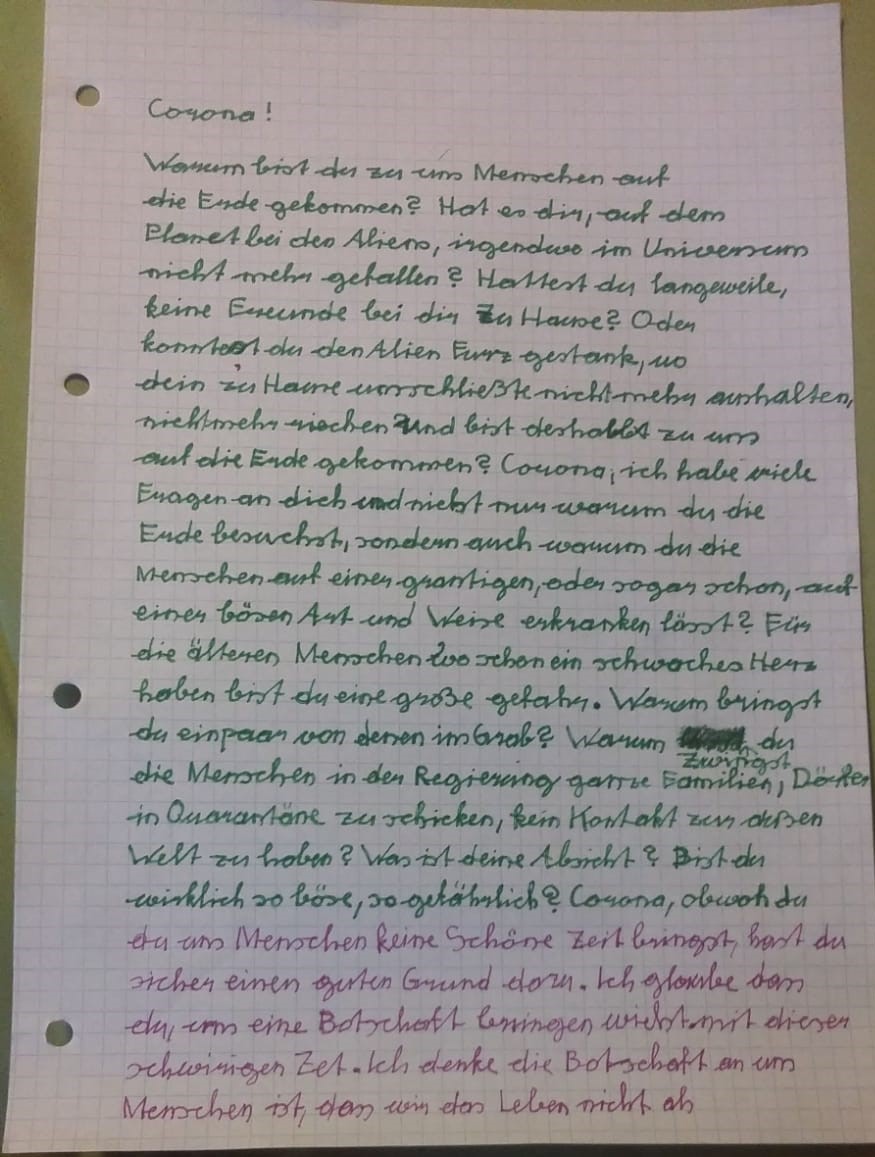 Corona!
Warum bist du zu uns Menschen auf
die Erde gekommen? Hat es dir, auf dem
Planet bei den Aliens, irgendwo im Universum
nicht mehr gefallen? Hattest du langeweile,
keine Freunde bei dir zu Hause? Oder
konntest du den Alien Furz gestank, wo
dein zu Hause umschließte nicht mehr aushalten,
nicht mehr riechen? und bist deshalb zu uns
auf die Erde gekommen? Corona, ich habe viele
Fragen an dich und nicht nur warum du die
Erde besuchst, sondern auch warum du die
Menschen auf einer grantigen, oder sogar schon, auf
einer bösen Art und Weise erkranken lässt? Für
die älteren Menschen wo schon ein schwaches Herz
haben bist du eine große gefahr. Warum bringst
du einpaar von denen im Grab? Warum zwingst du
die Menschen in der Regierung ganze Familien, Dörfer
in Quarantäne zu schicken, kein Kontakt zur außen
Welt zu haben? Was ist deine Absicht? Bist du
wirklich so böse, so gefährlich? Corona, obwoh du
du uns Menschen keine Schöne Zeit bringst, hast du
sicher einen guten Grund dazu. Ich glaube das
du, uns eine Botschaft bringen willst mit dieser
schwirigen Zet. Ich denke die Botschaft an uns
Menschen ist, das wir das Leben nicht als